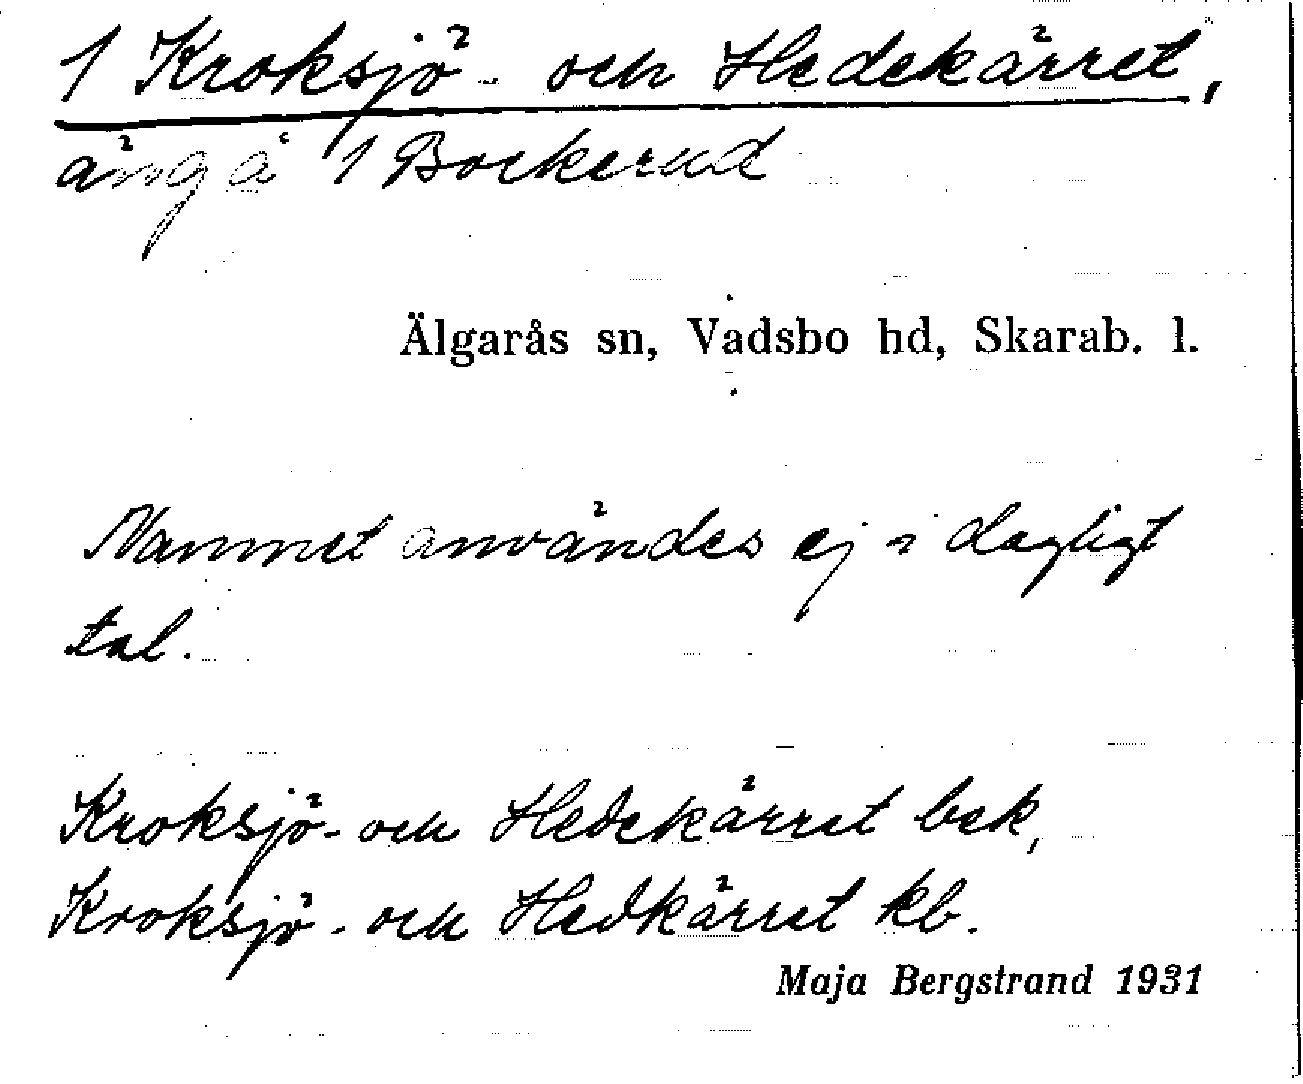 1 Kroksjö- och Hedekärret,
äng å 1 Bockerud
Älgarås sn, Vadsbo hd, Skarab. l.
Namnet användes ej i dagligt
tal.
Kroksjö- och Hedekärret bek,
Kroksjö- och Hedkärret kb.
Maja Bergstrand 1931